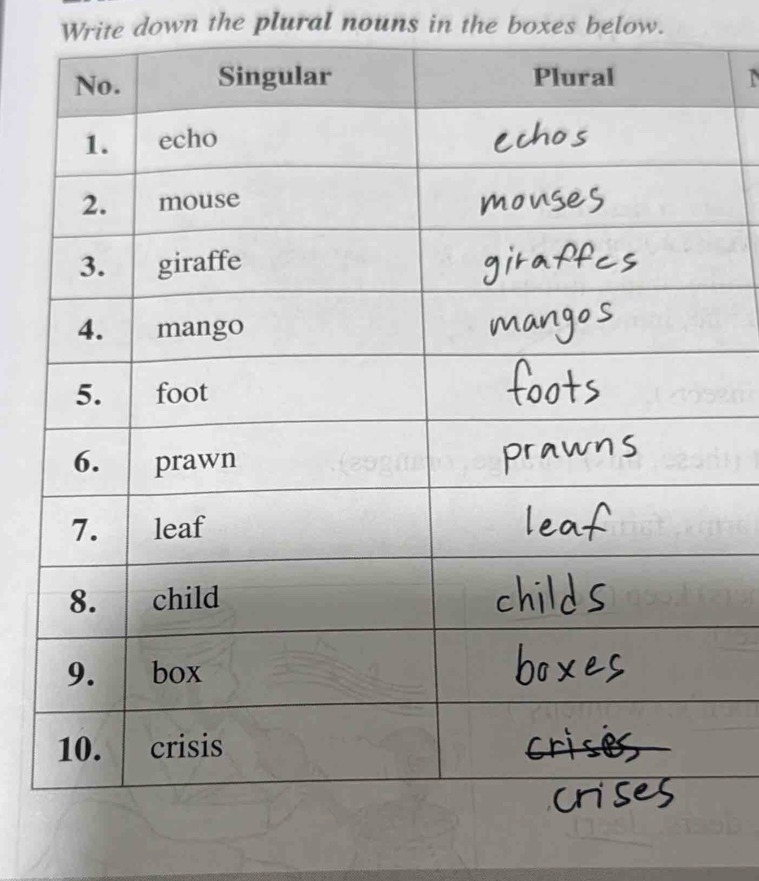 Write down the plural nouns in the boxes below.
No. Singular Plural
1. echo echos
2. mouse mouses
3. giraffe giraffes
4. mango mangos
5. foot foots
6. prawn prawns
7. leaf leaf
8. child childs
9. box boxes
10. crisis crises
crises